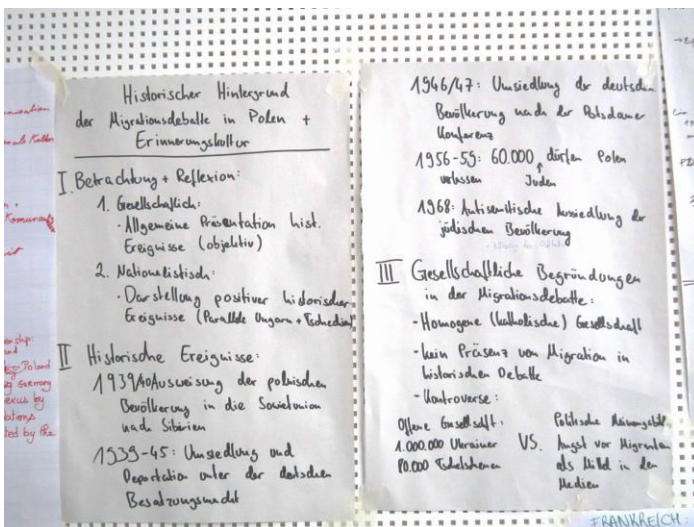 Historischer Hintergrund
der Migrationsdebatte in Polen +
Erinnerungskultur
I. Betrachtung + Reflexion:
1. Gesellschaftlich:
· Allgemeine Präsentation hist.
Ereignisse (objektiv)
2. Nationalistisch:
· Darstellung positiver historischer
Ereignisse (Parallele Ungarn + Tschechien)
II Historische Ereignisse:
1939/40 Ausweisung der polnischen
Bevölkerung in die Sowietunion
nach Sibirien
1939-45: Umsiedlung und
Deportation unter der deutschen
Besatzungsmacht
1946/47: Umsiedlung der deutschen
Bevölkerung nach der Potsdamer
Konferenz
1956-59: 60.000 dürfen Polen
verlassen Juden
1968: Antisemitische Aussiedlung der
jüdischen Bevölkerung
III Gesellschaftliche Begründungen
in der Migrationsdebatte:
- Homogene (katholische) Gesellschaft
- kein Präsenz von Migration in
historischen Debatte
- Kontroverse:
Offene Gesellschaft:
1.000.000 Ukrainer
80.000 Tschetschenen
VS.
Politische
Angst vor Migranten
als Mittel in den
Medien
Poland
Germany
by
ted by the
FRANKREICH